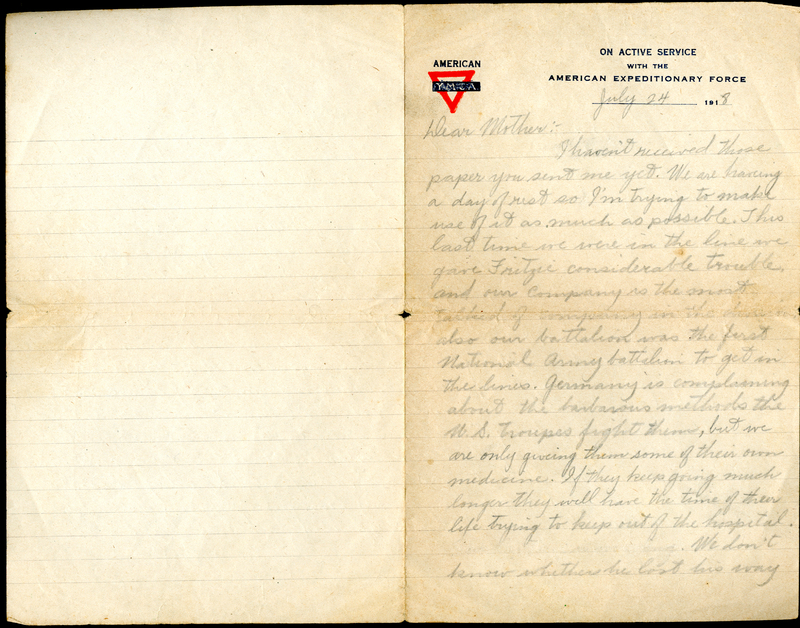 AMERICAN
Y.M.C.A
ON ACTIVE SERVICE
WITH THE
AMERICAN EXPEDITIONARY FORCE
July 24 1918
Dear Mother:-
I haven't received those
paper you sent me yet. We are having
a day of rest so I'm trying to make
use of it as much as possible. This
last time we were in the line we
gave Fritzie considerable trouble,
and our company is the most
talked of company in the
also our battalion was the first
National Army battalion to get in
the lines. Germany is complaining
about the barbarous methods the
U.S. troupes fight them, but we
are only giveing them some of their own
medicine. If they keep going much
longer they will have the time of their
life trying to keep out of the hospital.
We don't
know whether he lost his way